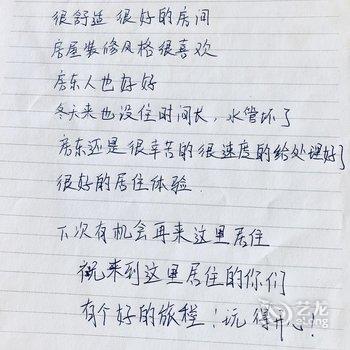 很舒适 很好的房间
房屋装修风格很喜欢
房东人也好好
冬天来也没住时间长，水管坏了
房东还是很辛苦的很速度的给处理好了
很好的居住体验.
下次有机会再来这里居住
祝来到这里居住的你们
有个好的旅程！玩得开心！
艺龙
eLong.com